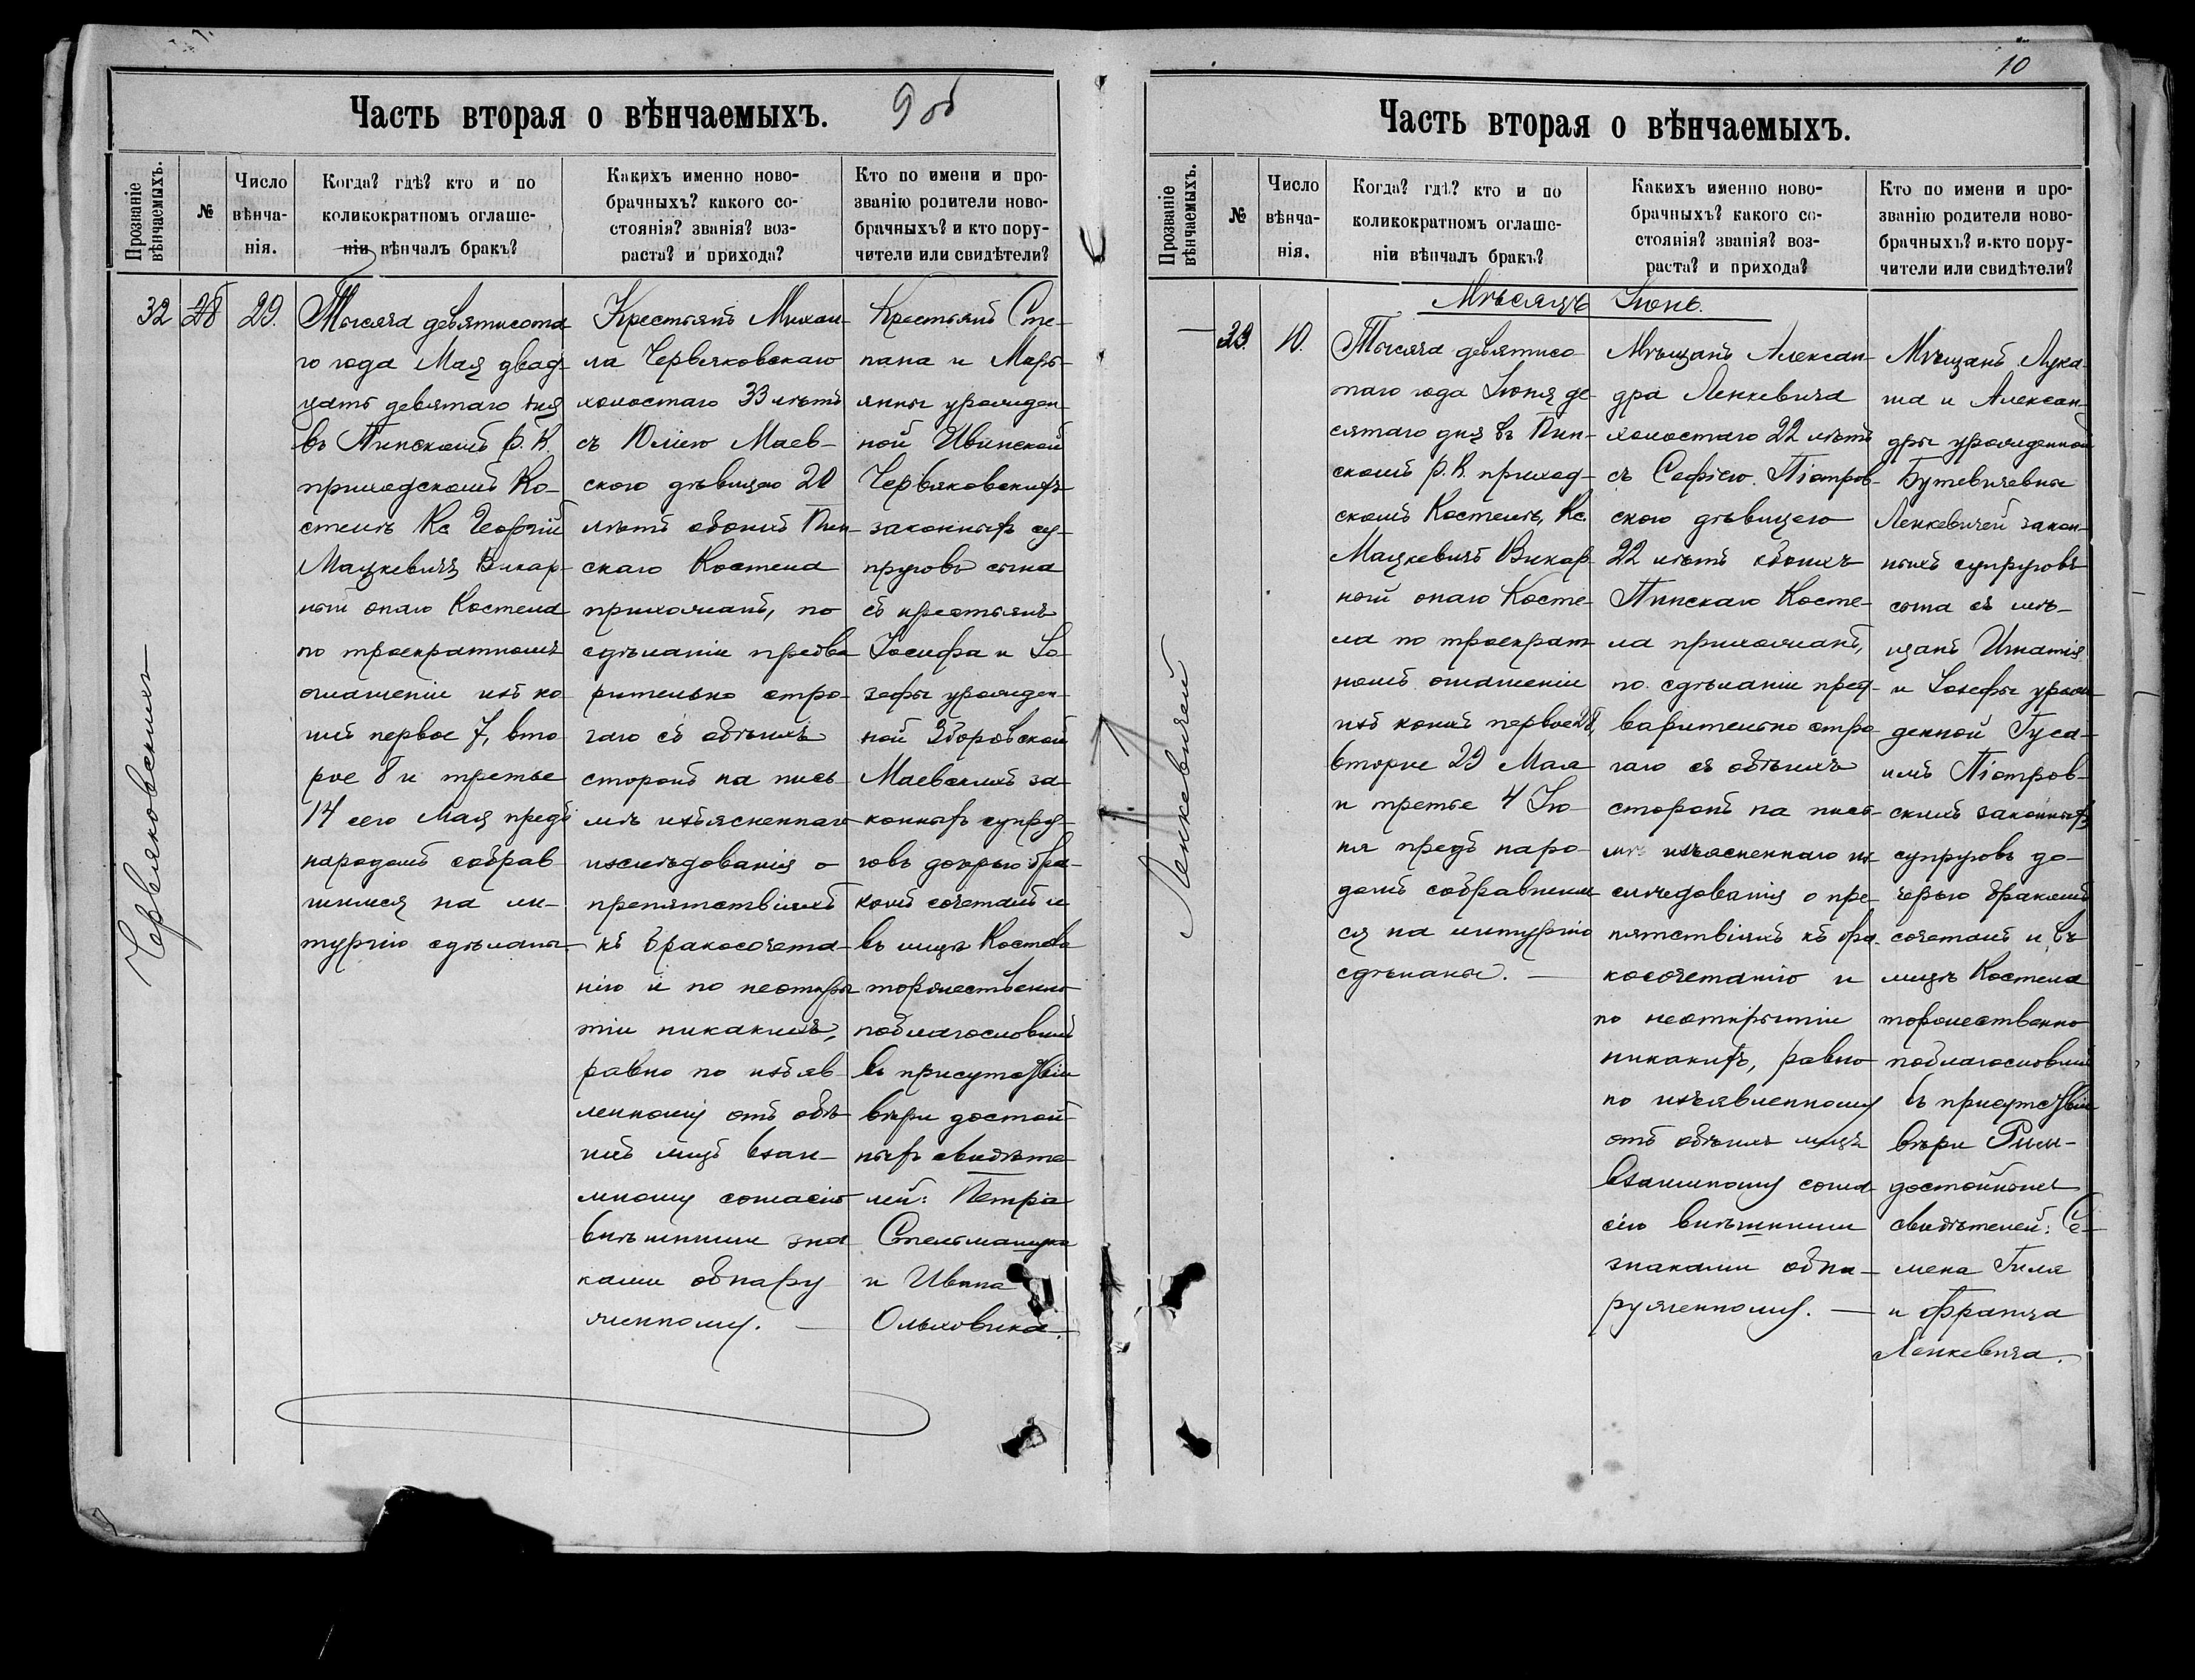 Часть вторая о вѣнчаемыхъ.
9 об
Прозваніе вѣнчаемыхъ.
№
Число вѣнча-нія.
Когда? гдѣ? кто и по
коликократномъ оглаше-
ніи вѣнчалъ бракъ?
Какихъ именно ново-
брачныхъ? какого со-
стоянія? званія? воз-
раста? и прихода?
Кто по имени и про-
званію родители ново-
брачныхъ? и кто пору-
чители или свидѣтели?
Червяковскихъ
32
28
29.
Тысяча девятисота
го года Мая двад-
цать девятаго дня
въ Пинскомъ Р. К.
приходскомъ Ко-
стелѣ Кс Георгій
Мацкевичъ Викар-
ный онаго Костела
по троекратномъ
оглашеніи изъ ко-
ихъ первое 7, вто
рое 8 и третье
14 сего Мая предъ
народомъ собрав-
шимся на ли-
тургію сдѣланы.
Крестьянъ Михаи-
ла Червяковскаго
холостаго 33 лѣтъ
съ Юліею Маев-
скою дѣвицею 20
лѣтъ обоихъ Пин-
скаго Костела
прихожанъ, по
сдѣланіи предва
рительно стро-
гаго съ обѣихъ
сторонъ на пись-
мѣ изъясненнаго
изслѣдованія о
препятствіяхъ
къ бракосочета-
нію и по неоткры
тіи никакихъ,
равно по изъяв-
ленному отъ обѣ-
ихъ лицъ взаи-
мному согласію
внѣшними зна
ками обнару
женному. —
Крестьянъ Сте-
пана и Марь-
янны урожден-
ной Ивинской
Червяковскихъ
законныхъ су-
пруговъ сына
съ крестьянъ
Іосифа и Іо-
зефы урожден-
ной Зборовской
Маевскихъ за-
конныхъ супру-
говъ дочерью бра-
комъ сочеталъ и
въ лицѣ Костела
торжественно
поблагословилъ
въ присутствіи
вѣры достой-
ныхъ свидѣте-
лей: Петра
Стельмащука
и Ивана
Ольховика.
10
Часть вторая о вѣнчаемыхъ.
Прозваніе вѣнчаемыхъ.
№
Число вѣнча-нія.
Когда? гдѣ? кто и по
коликократномъ оглаше-
ніи вѣнчалъ бракъ?
Какихъ именно ново-
брачныхъ? какого со-
стоянія? званія? воз-
раста? и прихода?
Кто по имени и про-
званію родители ново-
брачныхъ? и кто пору-
чители или свидѣтели?
Мѣсяцъ Іюнь.
Ленкевичей
10.
Тысяча девятисо-
таго года Іюня де-
сятаго дня въ Пин-
скомъ Р. К. приход-
скомъ Костелѣ, Кс.
Мацкевичъ Викар-
ный онаго Косте-
ла по троекрат-
номъ оглашеніи
изъ коихъ первое 28,
второе 29 Мая
и третье 4 Ію-
ня предъ наро-
домъ собравшим
ся на литургію
сдѣланы. —
Мѣщанъ Алексан-
дра Ленкевича
холостаго 22 лѣтъ
съ Софіею Піотров-
скою дѣвицею
22 лѣтъ обоихъ
Пинскаго Косте-
ла прихожанъ,
по сдѣланіи пред-
варительно стро-
гаго съ обѣихъ
сторонъ на пись-
мѣ изъясненнаго из-
слѣдованія о пре-
пятствіяхъ къ бра-
косочетанію и
по неоткрытіи
никакихъ, равно
по изъявленному
отъ обѣихъ лицъ
взаимному согла-
сію внѣшними
знаками обна-
руженному. —
Мѣщанъ Лука-
ша и Алексан-
дры урожденной
Бутевичевны
Ленкевичей закон-
ныхъ супруговъ
сына съ мѣ-
щанъ Игнатія
и Іозефы урож-
денной Гуса-
имъ Піотров-
скихъ законныхъ
супруговъ до-
черью бракомъ
сочеталъ и въ
лицѣ Костела
торжественно
поблагословилъ
въ присутствіи
вѣры
достойныхъ
свидѣтелей: Се-
мена Гиля
и Франца
Ленкевича.